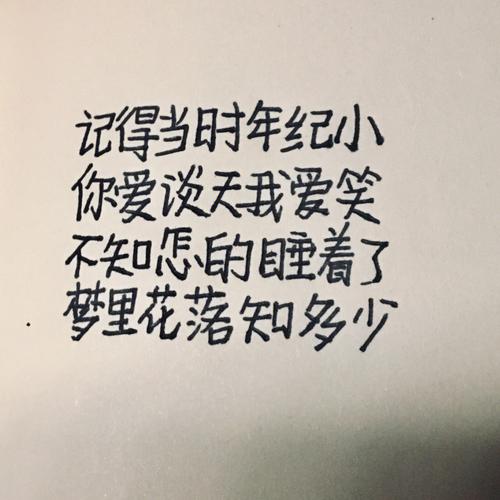 记得当时年纪小
你爱谈天我爱笑
不知怎的睡着了
梦里花落知多少